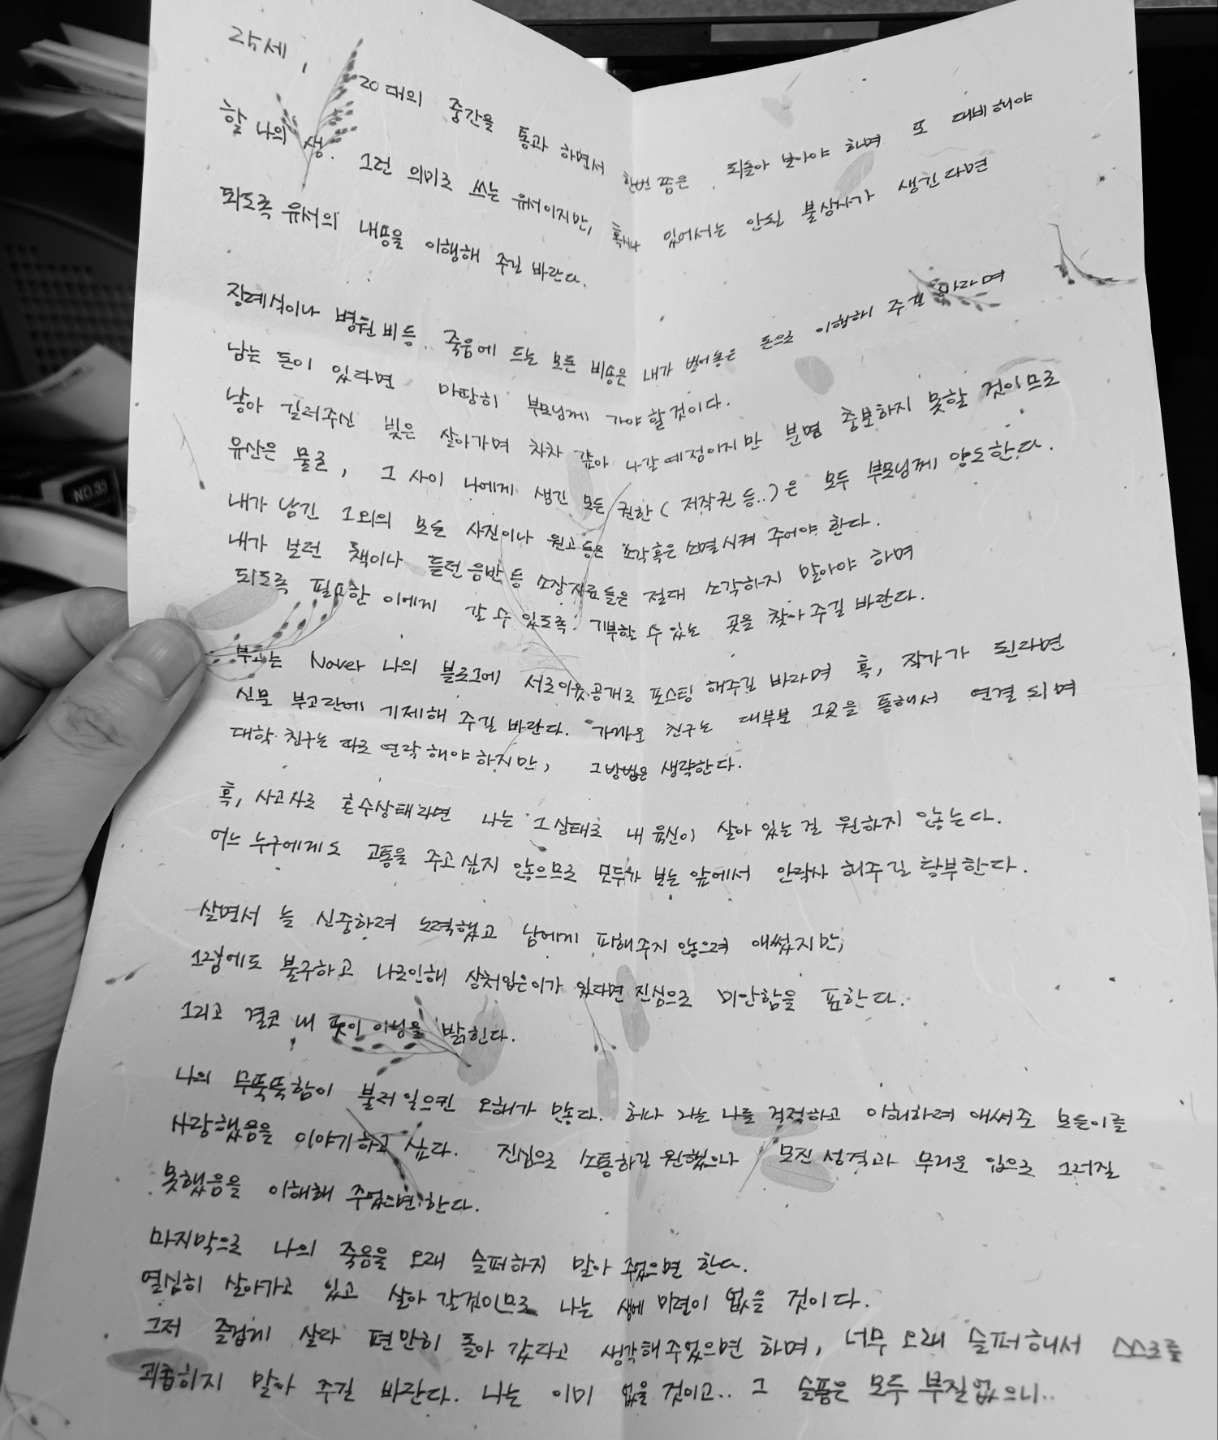 25세, 20대의 중간을 통과 하면서 한번 쯤은, 되돌아 보아야 하며 또 대비해야
할 나의 생. 그런 의미로 쓰는 유서이지만, 혹시나 있어서는 안될 불상사가 생긴다면
되도록 유서의 내용을 이행해 주길 바란다.
장례식이나 병원비등, 죽음에 드는 모든 비용은 내가 벌어놓은 돈으로 이행해 주길 바라며
남는 돈이 있다면 마땅히 부모님께 가야 할 것이다.
낳아 길러주신 빚은 살아가며 차차 갚아 나갈 예정이지만 분명 충분하지 못할 것이므로
유산은 물론, 그 사이 나에게 생긴 모든 권한(저작권 등..)은 모두 부모님께 양도한다.
내가 남긴 그외의 모든 사진이나 원고등은 소각 혹은 소멸시켜 주어야 한다.
내가 보던 책이나 듣던 음반 등 소장자료들은 절대 소각하지 말아야 하며
되도록 필요한 이에게 갈 수 있도록 기부할 수 있는 곳을 찾아 주길 바란다.
부고는 Naver 나의 블로그에 서로이웃공개로 포스팅 해주길 바라며 혹, 작가가 된다면
신문 부고란에 기제해 주길 바란다. 가까운 친구는 대부분 그곳을 통해서 연결 되며
대학 친구는 따로 연락해야 하지만, 그 방법은 생략한다.
혹, 사고사로 혼수상태라면 나는 그 상태로 내 육신이 살아 있는 걸 원하지 않는다.
어느 누구에게도 고통을 주고 싶지 않으므로 모두가 보는 앞에서 안락사 해주길 당부한다.
살면서 늘 신중하려 노력했고 남에게 피해주지 않으려 애썼지만,
그럼에도 불구하고 나로인해 상처입은이가 있다면 진심으로 미안함을 표한다.
그리고 결코 내 뜻이 아님을 밝힌다.
나의 무뚝뚝함이 불러 일으킨 오해가 많다. 허나 나는 나를 걱정하고 이해하려 애써준 모든이를
사랑했음을 이야기하고 싶다. 진심으로 소통하길 원했으나 모진 성격과 무거운 입으로 그러질
못했음을 이해해 주었으면 한다.
마지막으로 나의 죽음을 오래 슬퍼하지 말아 주었으면 한다.
열심히 살아가고 있고 살아 갈것이므로 나는 생에 미련이 없을 것이다.
그저 즐겁게 살다 편안히 돌아 갔다고 생각해주었으면 하며, 너무 오래 슬퍼해서 스스로를
괴롭히지 말아 주길 바란다. 나는 이미 없을 것이고.. 그 슬픔은 모두 부질없으니..
ND.33